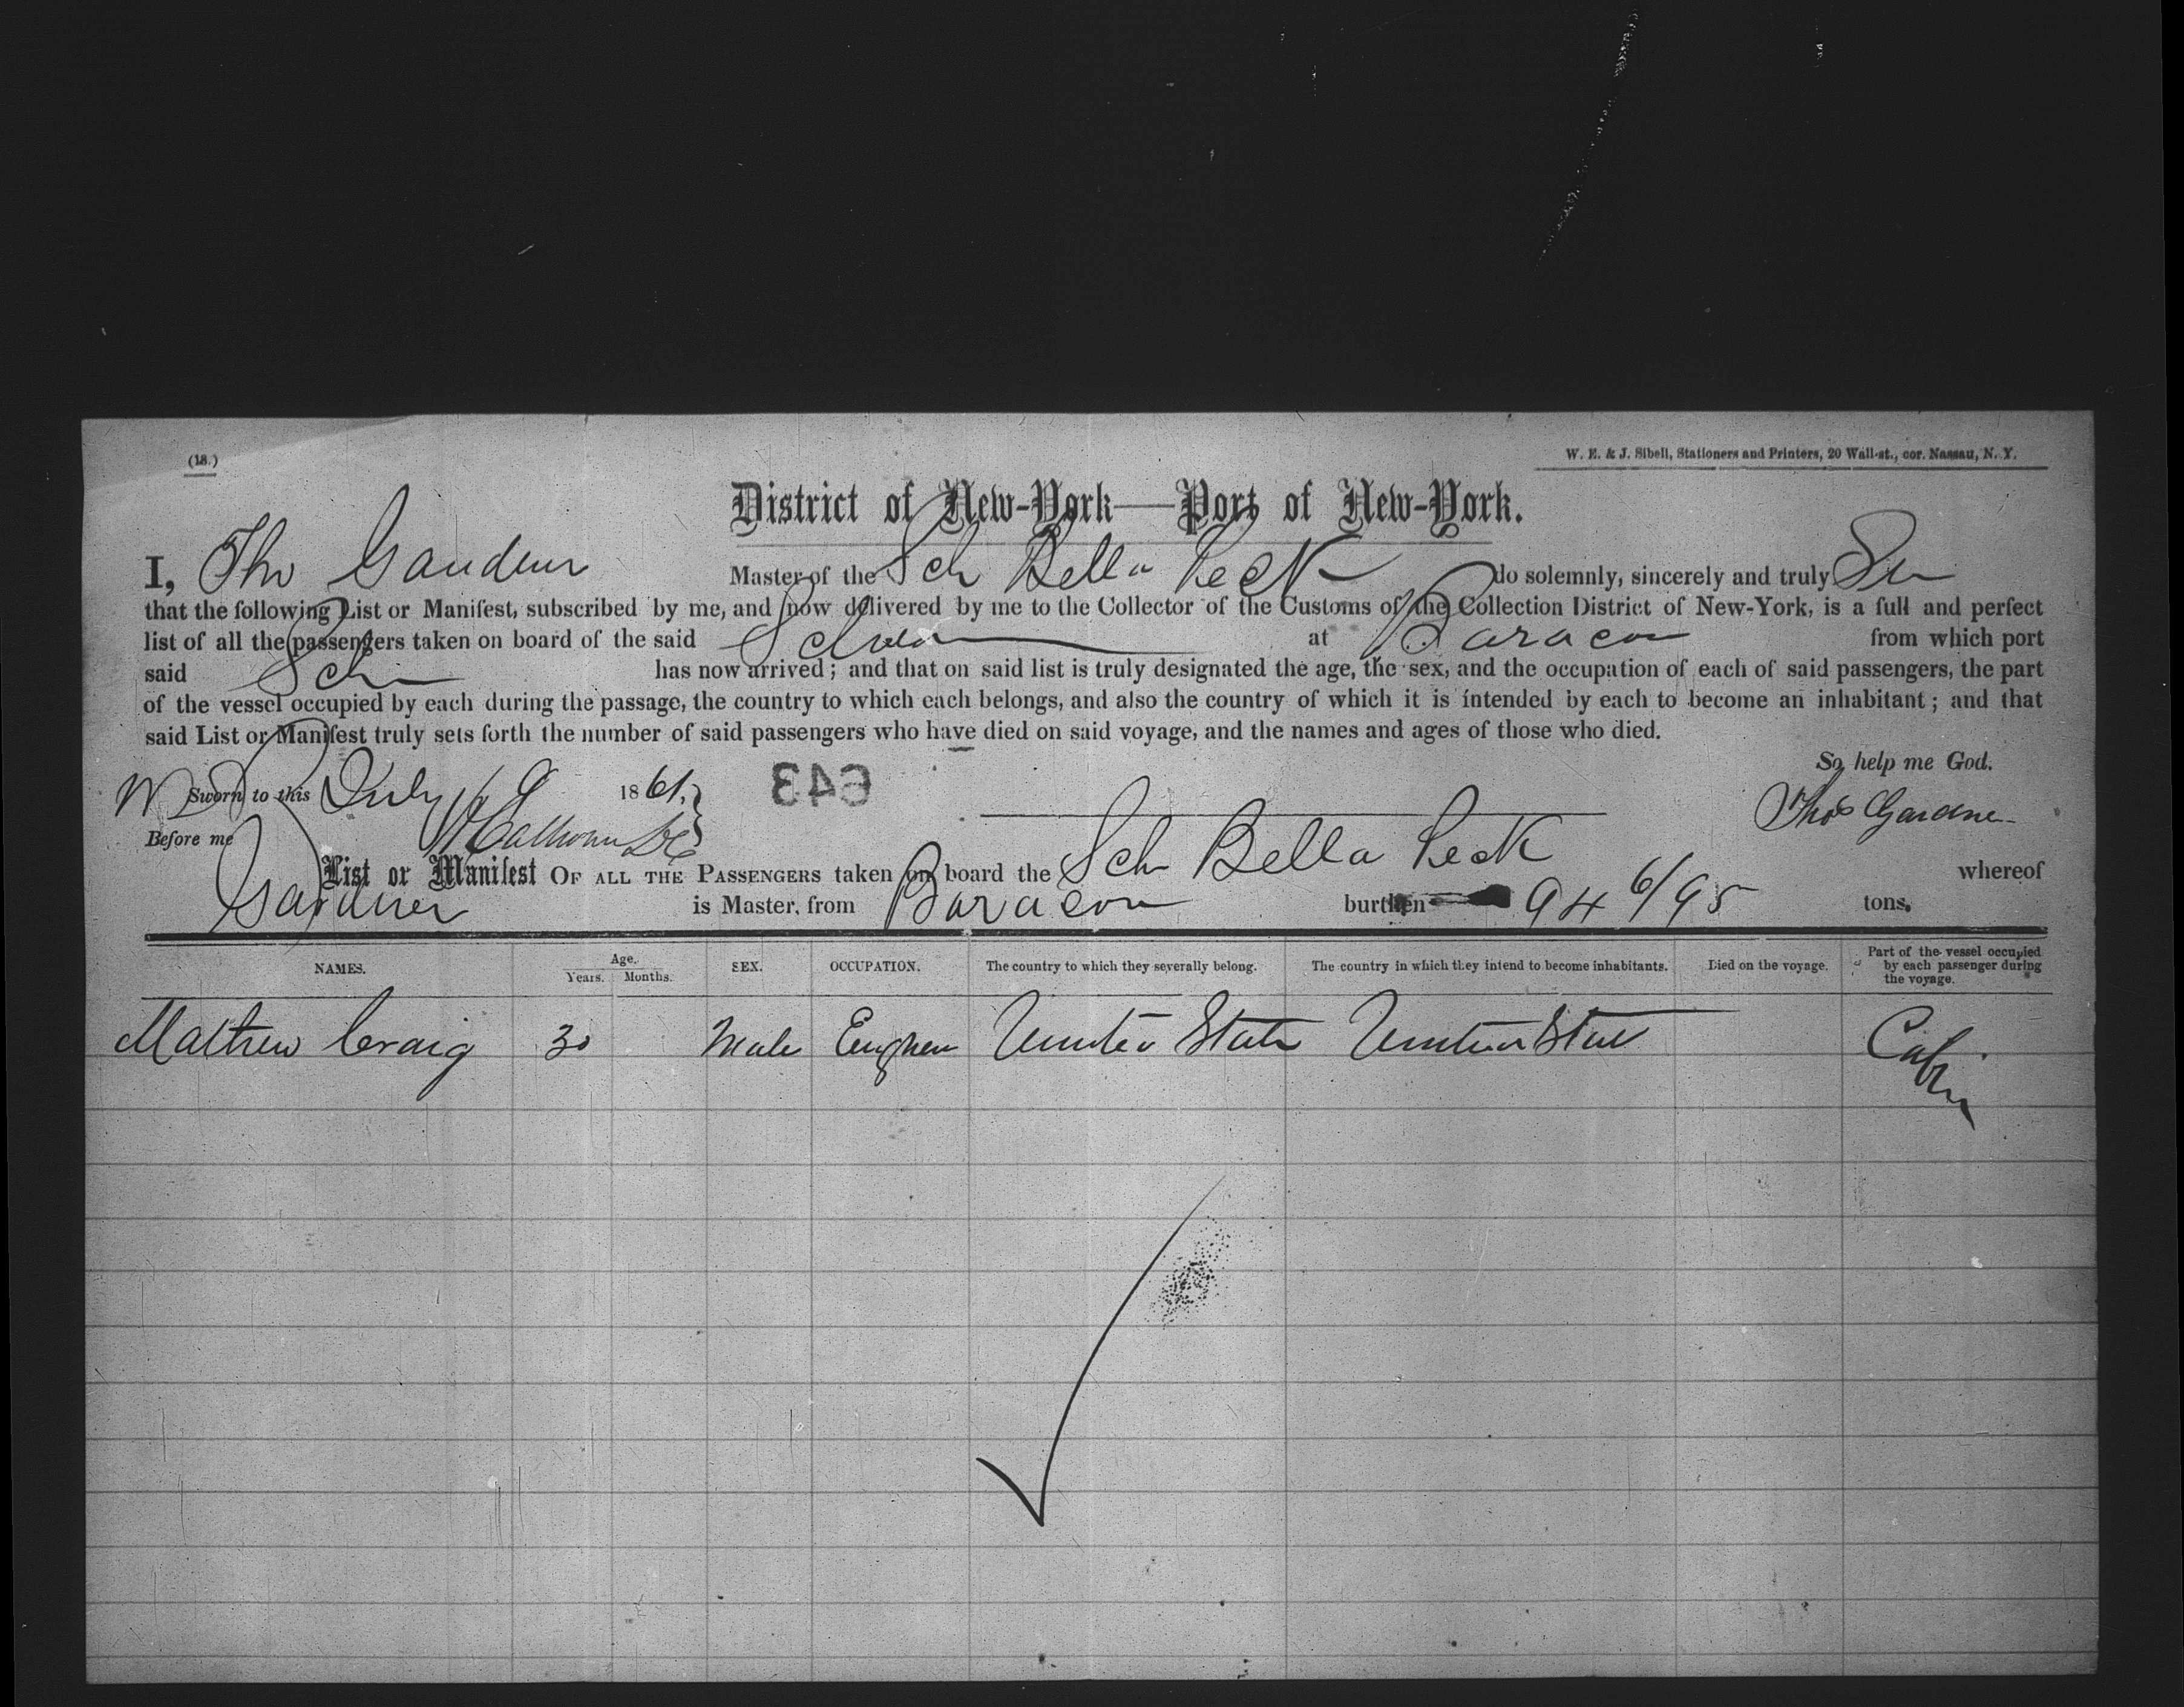 (18.)
W. E. & J. Sibell, Stationers and Printers, 20 Wall-st., cor. Nassau, N. Y.
District of New-York—Port of New-York.
I, Tho Gardner Master of the Sch Bella Peck do solemnly, sincerely and truly
that the following List or Manifest, subscribed by me, and now delivered by me to the Collector of the Customs of the Collection District of New-York, is a full and perfect
list of all the passengers taken on board of the said at Baracoa from which port
said Sch has now arrived; and that on said list is truly designated the age, the sex, and the occupation of each of said passengers, the part
of the vessel occupied by each during the passage, the country to which each belongs, and also the country of which it is intended by each to become an inhabitant; and that
said List or Manifest truly sets forth the number of said passengers who have died on said voyage, and the names and ages of those who died.
So help me God.
Sworn to this July 9 1861. 643 Thos Gardner
Before me Calhoun
List or Manifest OF ALL THE PASSENGERS taken on board the Sch Bella Peck whereof
Gardner is Master, from Baracoa burthen 94 6/95 tons.
NAMES. Age. Years. Months. SEX. OCCUPATION. The country to which they severally belong. The country in which they intend to become inhabitants. Died on the voyage. Part of the vessel occupied by each passenger during the voyage.
Mathew Craig 30 Male Engineer United States United States Cabin